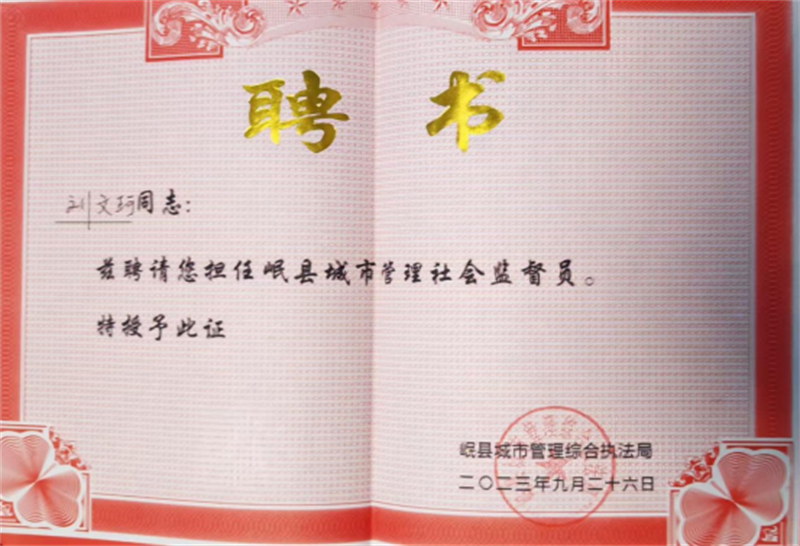 聘书
刘文珂同志：
兹聘请您担任岷县城市管理社会监督员。
特授予此证
岷县城市管理综合执法局
二〇二三年九月二十六日